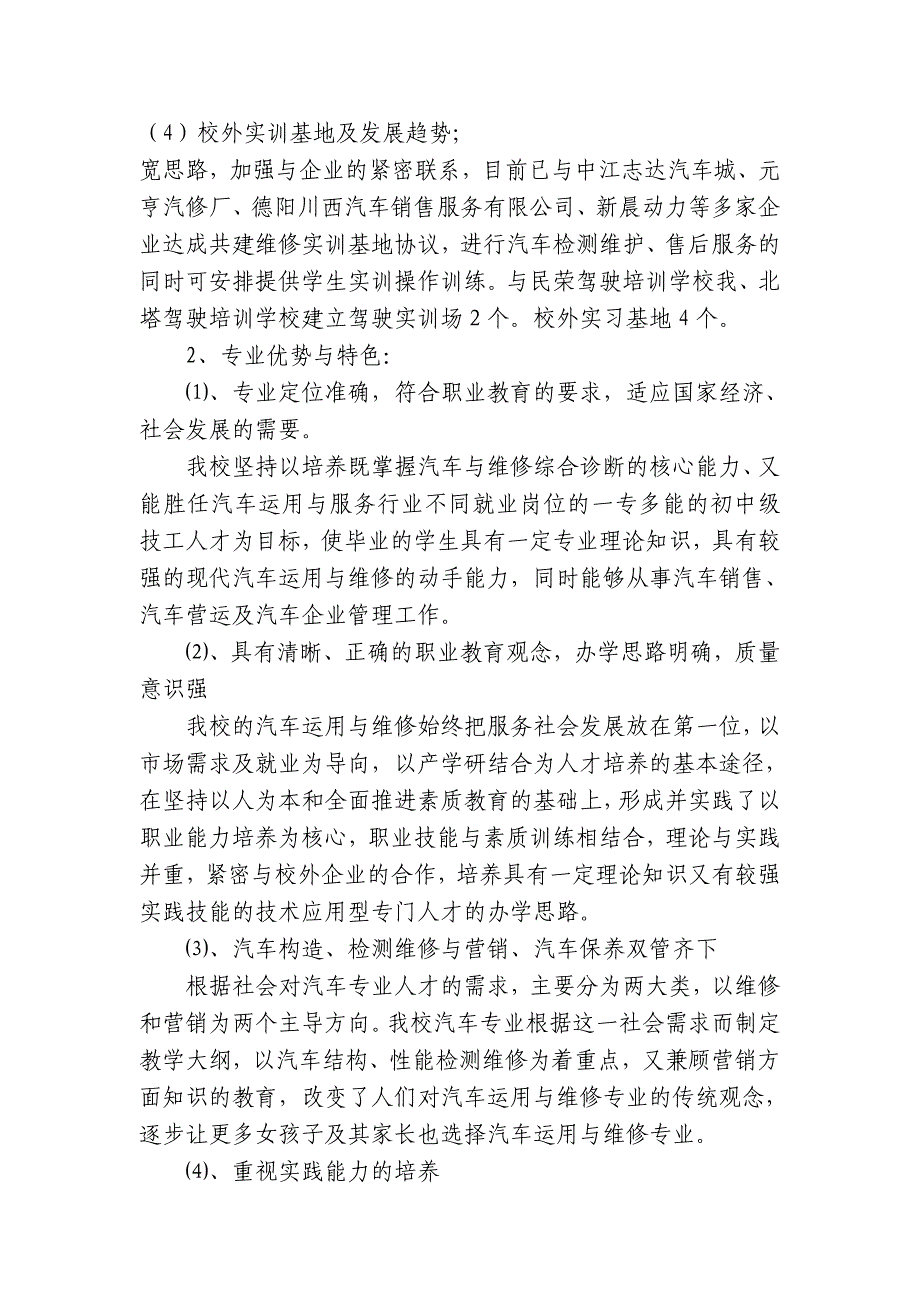 （4）校外实训基地及发展趋势；
宽思路，加强与企业的紧密联系，目前已与中江志达汽车城、元
亨汽修厂、德阳川西汽车销售服务有限公司、新晨动力等多家企
业达成共建维修实训基地协议，进行汽车检测维护、售后服务的
同时可安排提供学生实训操作训练。与民荣驾驶培训学校我、北
塔驾驶培训学校建立驾驶实训场 2 个。校外实习基地 4 个。
2、专业优势与特色：
⑴、专业定位准确，符合职业教育的要求，适应国家经济、
社会发展的需要。
我校坚持以培养既掌握汽车与维修综合诊断的核心能力、又
能胜任汽车运用与服务行业不同就业岗位的一专多能的初中级
技工人才为目标，使毕业的学生具有一定专业理论知识，具有较
强的现代汽车运用与维修的动手能力，同时能够从事汽车销售、
汽车营运及汽车企业管理工作。
⑵、具有清晰、正确的职业教育观念，办学思路明确，质量
意识强
我校的汽车运用与维修始终把服务社会发展放在第一位，以
市场需求及就业为导向，以产学研结合为人才培养的基本途径，
在坚持以人为本和全面推进素质教育的基础上，形成并实践了以
职业能力培养为核心，职业技能与素质训练相结合，理论与实践
并重，紧密与校外企业的合作，培养具有一定理论知识又有较强
实践技能的技术应用型专门人才的办学思路。
⑶、汽车构造、检测维修与营销、汽车保养双管齐下
根据社会对汽车专业人才的需求，主要分为两大类，以维修
和营销为两个主导方向。我校汽车专业根据这一社会需求而制定
教学大纲，以汽车结构、性能检测维修为着重点，又兼顾营销方
面知识的教育，改变了人们对汽车运用与维修专业的传统观念，
逐步让更多女孩子及其家长也选择汽车运用与维修专业。
⑷、重视实践能力的培养